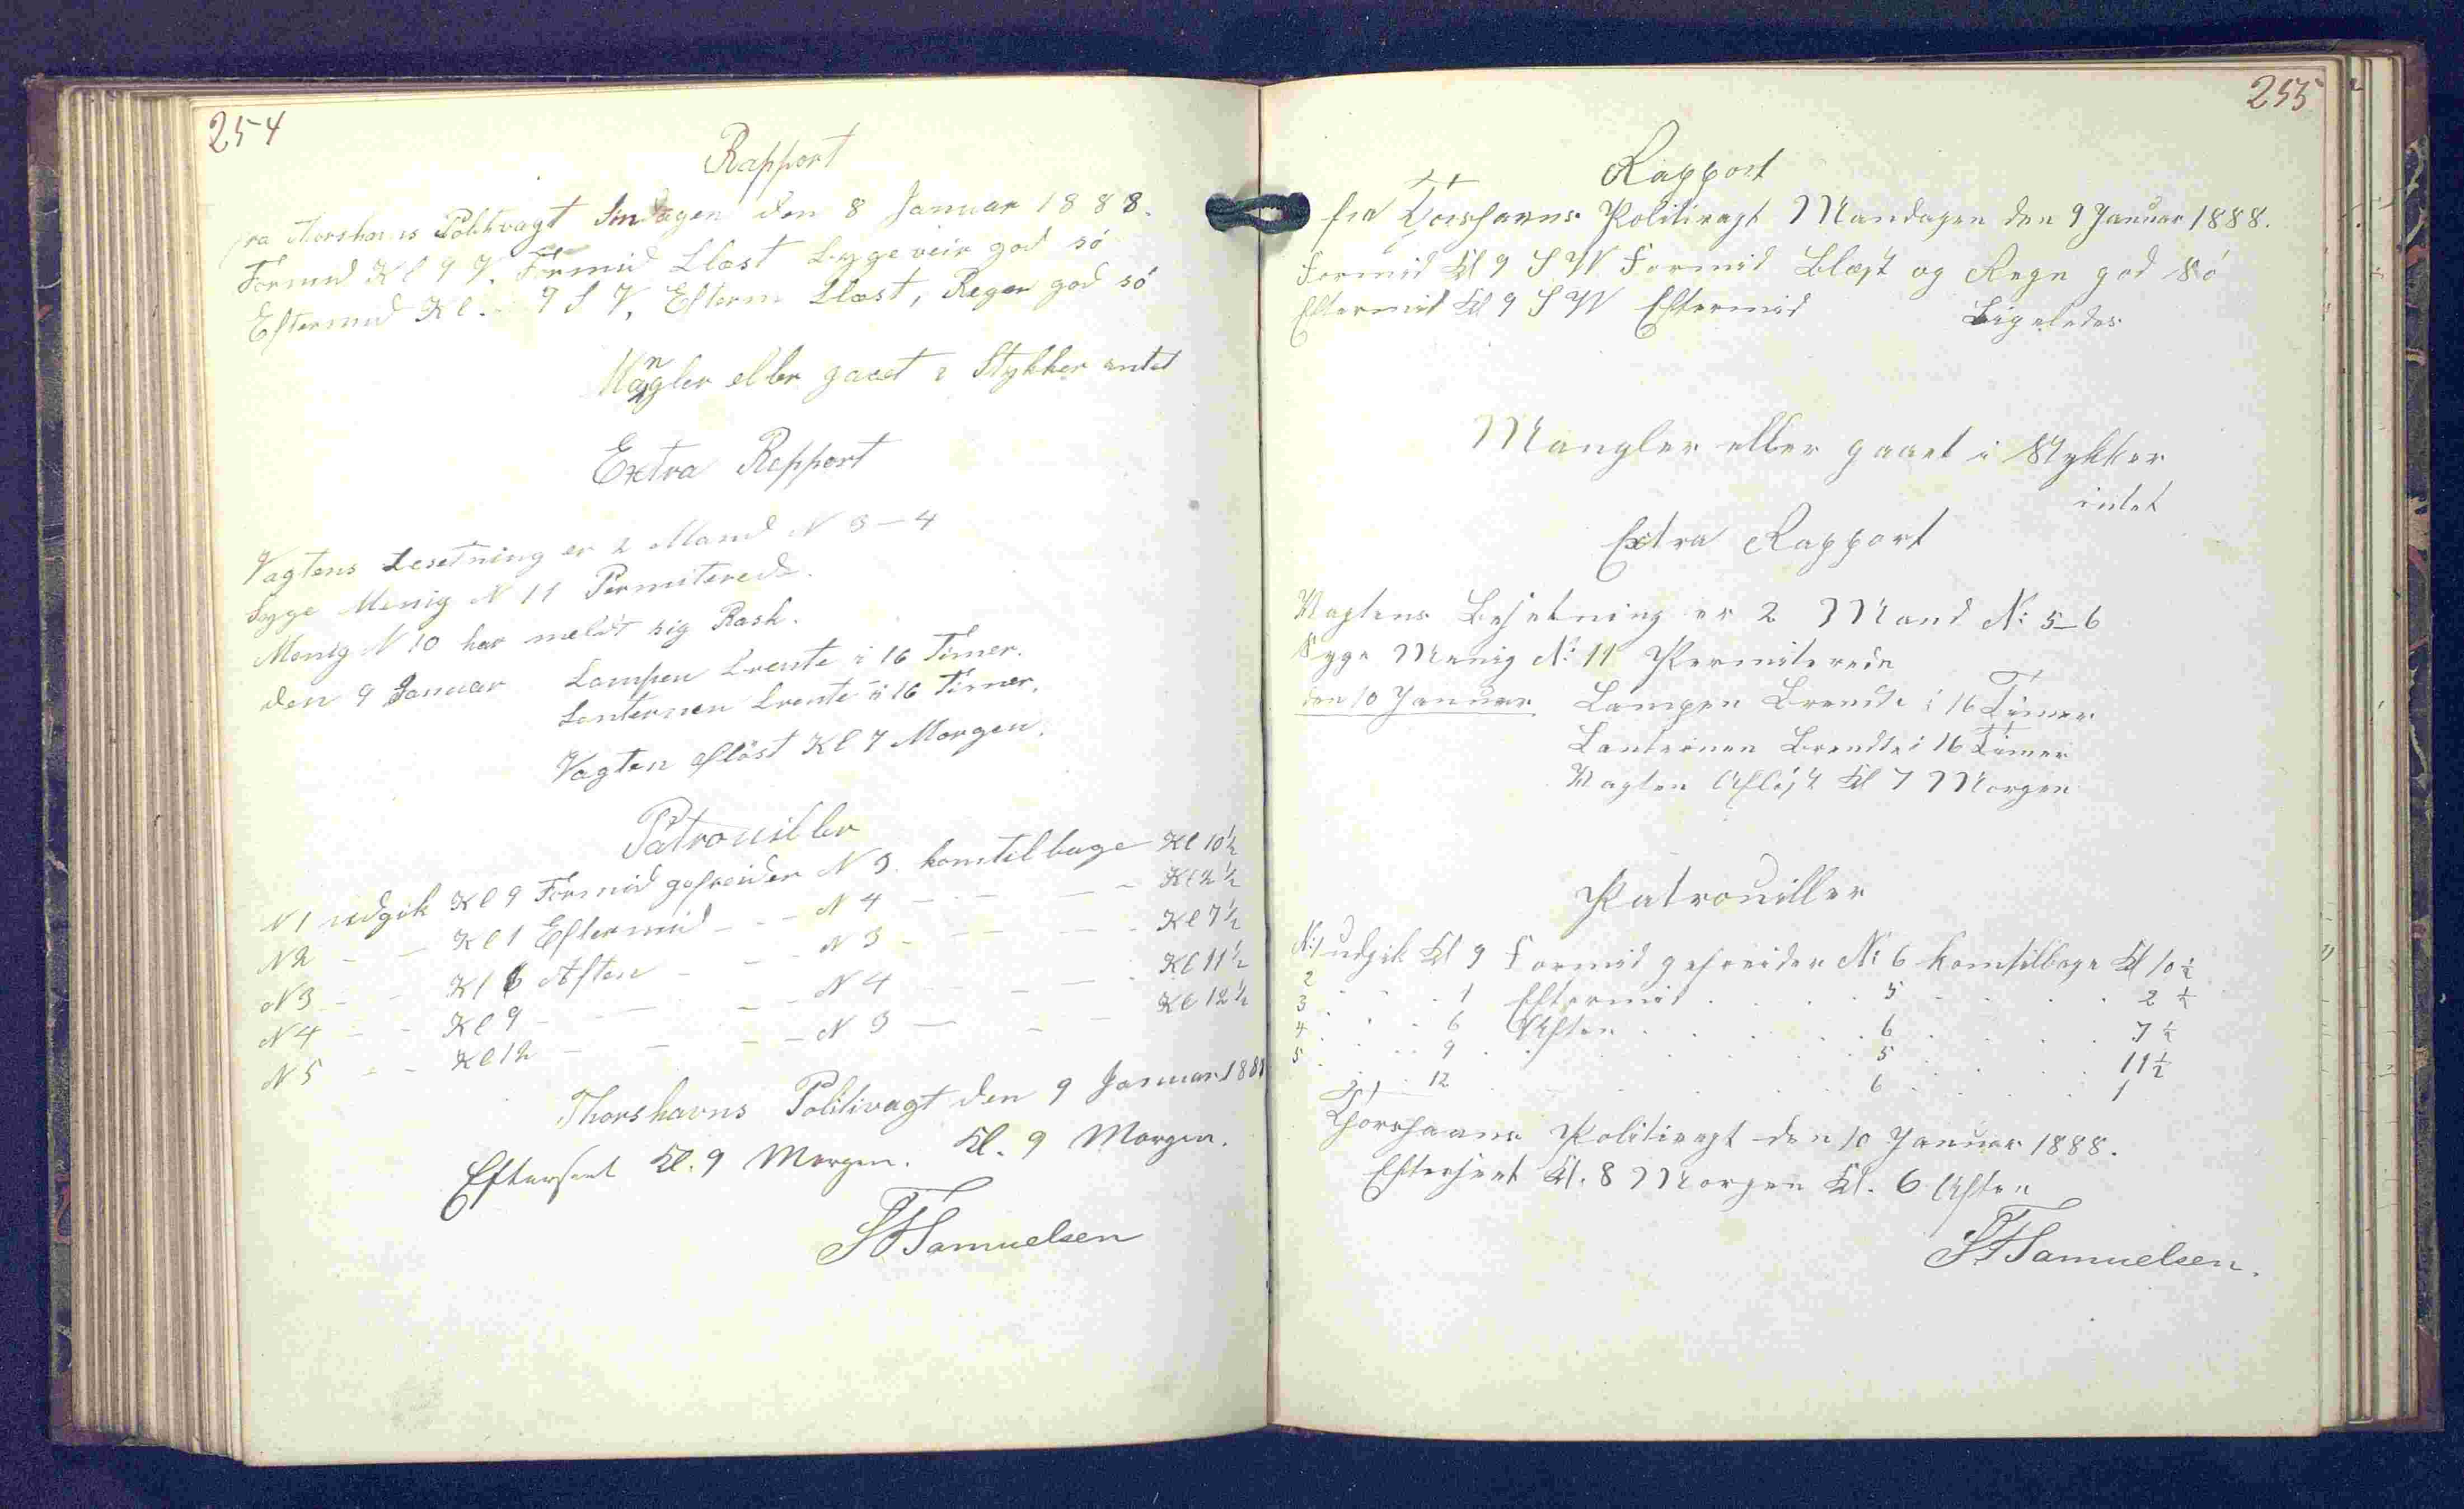 254
Rapport
fra Thorshavns Politivagt Sndagen den 8 Januar 1888.
Formid Kl 9 V. Formid Blæst Bygeveir god sö
Eftermid Kl. 9 S V. Efterm Blæst, Regn god sö
Mangler eller gaaet i Stykker intet
Extra Rapport
Vagtens Besetning er 2 Mand N 3-4
Syge Menig N 11 Permiterede.
Menig N 10 har meldt sig Rask.
den 9 Januar Lampen brente i 16 Timer.
Lanternen brente i 16 Timer.
Vagten aflöst Kl 7 Morgen.
Patrouiller
N 1 udgik Kl 9 Formid gefreider N 3. komtilbage Kl 10½
N 2 - - Kl 1 Eftermid - - N 4 - - - - Kl 2½
N 3 - - Kl 6 Aften - - - N 3 - - - - Kl 7½
N 4 - - Kl 9 - - - - N 4 - - - - Kl 11½
N 5 - - Kl 12 - - - - N 3 - - - Kl 12½
Thorshavns Politivagt den 9 Januar 1888
Efterseet Kl. 9 Morgen. Kl. 9 Morgen.
SFSamuelsen
255
Rapport
fra Thorshavns Politivagt Mandagen den 9 Januar 1888.
Formid Kl 9 S W Formid Blæst og Regn god Sö
Eftermid Kl 9 S W Eftermid Ligeledes
Mangler eller gaaet i Stykker
intet
Extra Rapport
Vagtens Besetning er 2 Mand N: 5-6
Syge Menig N: 11 Permiterede
den 10 Januar Lampen Brendte i 16 Timer
Lanternen Brendte i 16 Timer
Vagten Aflöst Kl 7 Morgen
Patrouiller
N: 1 udgik Kl 9 Formid gefreider N: 6 komtilbage Kl 10½
2 . . . 1 Eftermid . . . . 5 . . . . 2½
3 . . . 6 Aften . . . . 6 . . . . 7½
4 . . . 9 . . . . 5 . . . . 11½
5 . . . 12 . . . . 6 . . . . 1
Thorshavns Politivagt den 10 Januar 1888.
Efterseet Kl. 8 Morgen Kl. 6 Aften
SFSamuelsen.